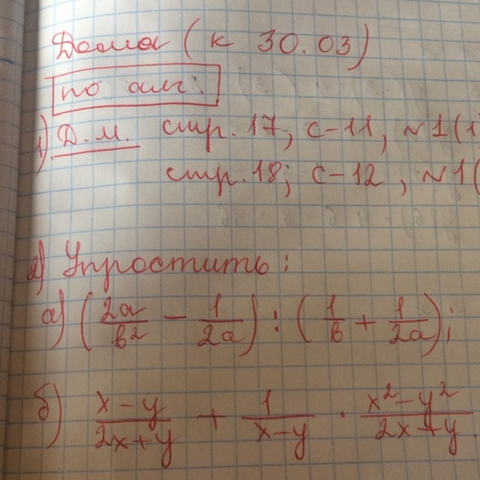 Дома (к 30.03)
по алг:
1) Д.М. стр. 17, с-11, №1(1
стр. 18; с-12, №1(
2) Упростить:
а) (2a/b² − 1/2a) : (1/b + 1/2a);
б) x−y/2x+y + 1/x−y · x²−y²/2x+y.